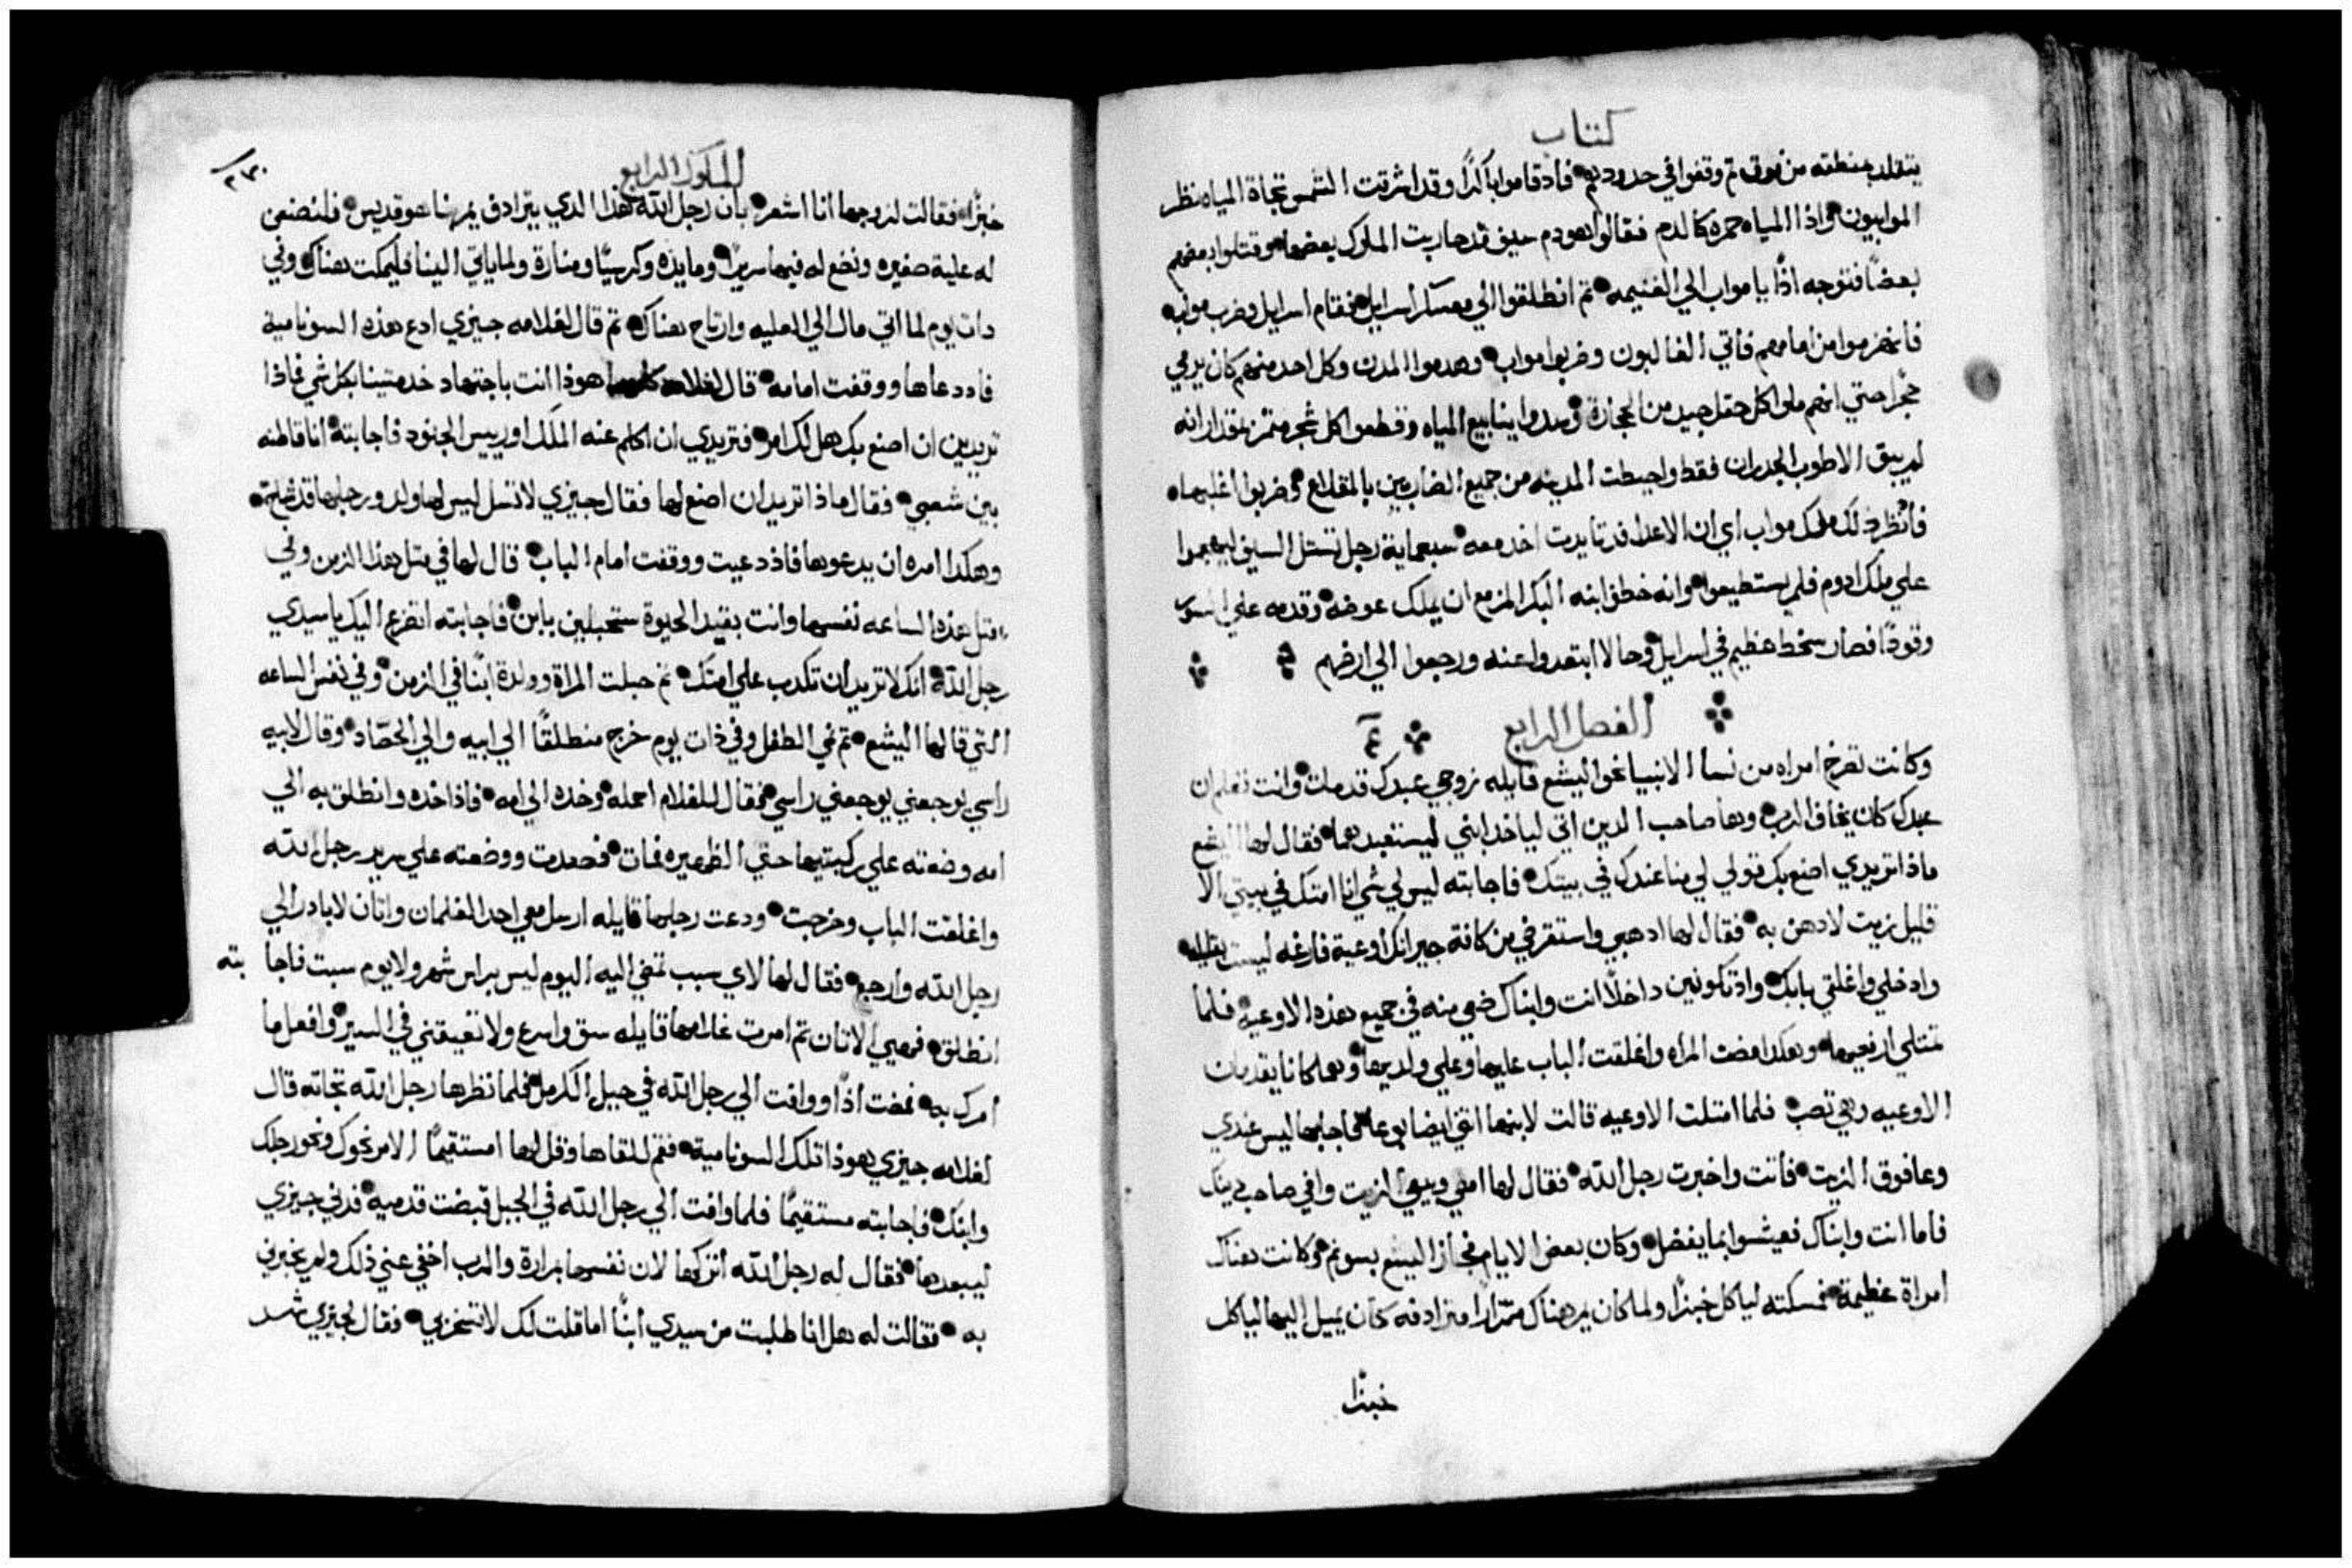 كتاب
يتقلد بمنطقته من فوق ثم وقفوا في حدودهم فاذ قاموا باكرًا وقد اشرقت الشمس تجاة المياه نظر
الموابيون واذا المياه حمره كالدم فقالوا هودم حيف قد حاربت الملوك بعضها وقتلوا بعضهم
بعضًا فتوجه اذًا يا مواب الي الغنيمه ثم انطلقوا الي معسكر اسرايل فقام اسرايل وضرب مواب
فانهزموا من امامهم فاتي الغالبون وضربوا مواب وهدموا المدن وكل احد منهم كان يرمي
حجرًا حتي انهم ملوا كل حقل جيد من الحجارة وسدوا ينابيع المياه وقطعوا كل شجره مثمره بمقدار انه
لم يبق الا طوب الجدران فقط واحيطت المدينه من جميع الضاربين بالمقلاع وضربوا اغلبها
فانظر ذلك ملك مواب اي ان الاعدا قد تايدت اخد معه سبعماية رجل تستل السيف ليهجموا
علي ملك ادوم فلم يستطيعوا وانه خطف ابنه البكر المزمع ان يملك عوضه وقدمه علي السور
وقودًا فصار سخط عظيم في اسرايل وحالا ابتعدوا عنه ورجعوا الي ارضهم
الفصل الرابع
وكانت تصرخ امراه من نسا الانبيا نحو اليشع قايله زوجي عبدك قد مات وانت تعلم ان
عبدك كان يخاف الرب وها صاحب الدين اتي لياخد ابني ليستعبدهما فقال لها اليشع
ماذا تريدي اصنع بك قولي لي منا عندك في بيتك فاجابته ليس لي شي انا امتك في بيتي الا
قليل زيت لادهن به فقال لها ادهبي واستقرضي من كافة جيرانك اوعية فارغه ليست بقليله
وادخلي واغلقي بابك واد تكونين داخلًا انت وابناك ضعي منه في جميع هذه الاوعيه فلما
تمتلي ارفعيها وهكدا مضت المراه واغلقت الباب عليها وعلي ولديها وهما كانا يقدمان
الاوعيه وهي تصب فلما امتلت الاوعيه قالت لابنها اتني ايضا بوعا فاجابها ليس عندي
وعا فوق الزيت فاتت واخبرت رجل الله فقال لها امضي وبيعي الزيت وافي صاحب دينك
فاما انت وابناك فعيشوا بما يفضل وكان بعض الايام فجاز اليشع بسونم وكانت هناك
امراة عظيمة فمسكته لياكل خبزًا ولما كان يمر هناك متمرارًا مترادفه كان يميل اليها لياكل
خبزا
الملوك الرابع
خبزًا فقالت لزوجها انا اشعر بان رجل الله هذا الدي يترادف يمر بنا هو قديس فلنصنعن
له علية صغيره ونضع له فيها سريرًا ومايده وكرسيًا ومنارة ولما ياتي الينا فليمكت هناك وفي
دات يوم لما اتي مال الي العليه وارتاح هناك ثم قال لغلامه جيزي ادع هذه السونامية
فاددعاها ووقفت امامه قال لغلامه هوذا انت باجتهاد خدمتينا بكل شي فماذا
تريدين ان اصنع بك هل لك امر فتريدي ان اكلم عنه الملك او رييس الجنود فاجابته انا قاطنه
بين شعبي فقال ماذا تريد ان اصنع لها فقال جيزي لا تسل ليس لها ولد ورجلها قد شاخ
وهكدا امره ان يدعوها فاذ دعيت ووقفت امام الباب قال لها في متل هذا الزمن وفي
متل هذه الساعه نفسها وانت بقيد الحيوة ستحبلين بابن فاجابته اتضرع اليك يا سيدي
رجل الله انك لا تريد ان تكدب علي امتك ثم حبلت المراة وولدة ابنًا في الزمن وفي نفس الساعه
التي قالها اليشع ثم نمي الطفل وفي ذات يوم خرج منطلقًا الي ابيه والي الحصاد وقال لابيه
راسي يوجعني يوجعني راسي فقال للغلام احمله وخده الي امه فاذ اخده وانطلق به الي
امه وضعته علي ركبتيها حتي الظهيره فمات فصعدت ووضعته علي سرير رجل الله
واغلقت الباب وخرجت ودعت رجلها قايله ارسل معي احد الغلمان واتان لابادر الي
رجل الله وارجع فقال لها لاي سبب تمضي اليه اليوم ليس براس شهر ولا يوم سبت فاجا بته
انطلق فهيي الاتان ثم امرت غلامها قايله سق واسرع ولا تعيقني في السير وافعل ما
امرك به فمضت اذًا ووافت الي رجل الله في جبل الكرمل فلما نظرها رجل الله تجاته قال
لغلامه جيزي هوذا تلك السونامية فقم للقاها وقل لها امستقيمًا الامر نحوك ونحو رجلك
وابنك فاجابته مستقيمًا فلما وافت الي رجل الله في الجبل قبضت قدميه فدني جيزي
ليبعدها فقال له رجل الله اتركها لان نفسها بمرارة والرب اخفي عني ذلك ولم يخبرني
به فقالت له هل انا طلبت من سيدي ابنًا اما قلت لك لا تتخزي بي فقال لجيزي شد